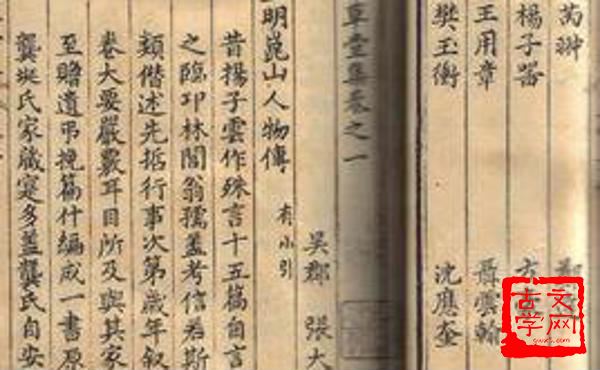 萬翀
楊子器
王用章
樊玉衡
聶雲翰
沈應奎
草堂集卷之一
吳郡 張大
明崑山人物傳 有小引
昔揚子雲作殊言十五篇自言
之臨邛林閭翁孺蓋考信若斯
類偕述先括行事次第歲年叙
卷大要嚴覈耳目所及與其家
至贍遺弔挽篇什編成一書原
龔氏家藏寔多蓋龔氏自安
古文学网
gwx5.com